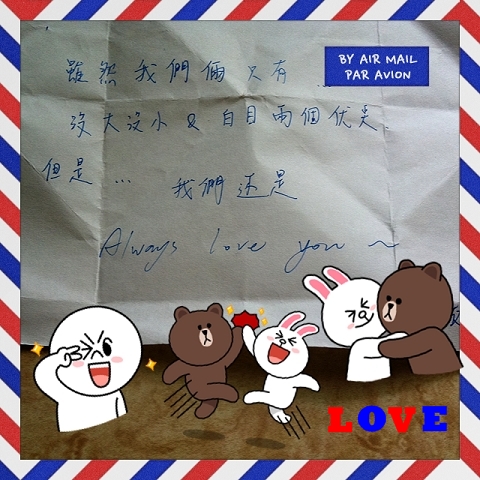 BY AIR MAIL
PAR AVION
雖然我們倆只有...
沒大沒小 & 白目兩個优
但是 ... 我們还是
Always love you ~
LOVE